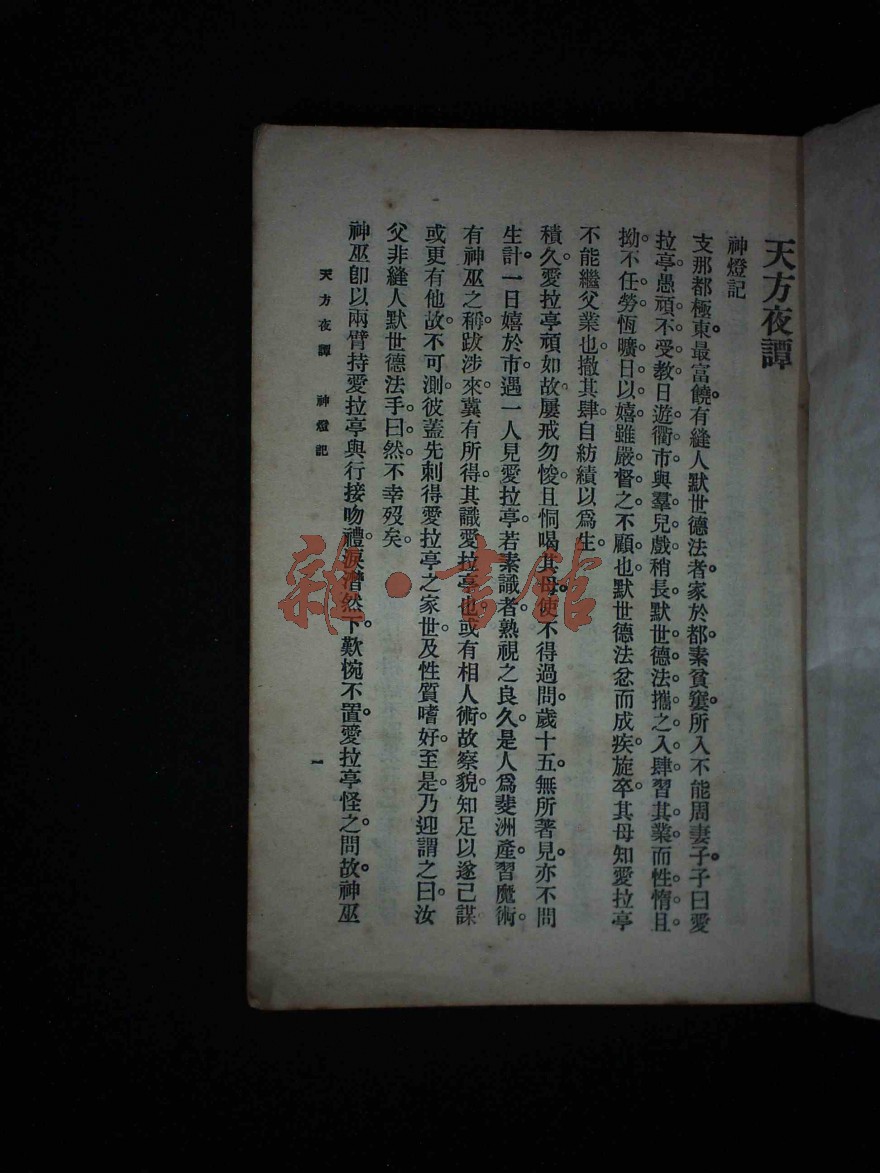 天方夜譚
神燈記
支那都極東。最富饒。有縫人默世德法者。家於都。素貧窶。所入不能周妻子。子曰愛
拉亭。愚頑不受教。日遊衢市。與羣兒戲。稍長。默世德法攜之入肆。習其業。而性惰且
拗。不任勞。恆曠日以嬉。雖嚴督之不顧也。默世德法忿而成疾。旋卒。其母知愛拉亭
不能繼父業也。撤其肆。自紡績以爲生。
積久。愛拉亭頑如故。屢戒勿悛。且恫喝其母。使不得過問。歲十五。無所著見。亦不問
生計。一日嬉於市。遇一人見愛拉亭。若素識者。熟視之良久。是人爲斐洲產。習魔術。
有神巫之稱。跋涉來。冀有所得。其識愛拉亭也。或有相人術。故察貌知足以遂己謀。
或更有他故。不可測。彼蓋先刺得愛拉亭之家世及性質嗜好。至是乃迎謂之曰。汝
父非縫人默世德法乎。曰。然。不幸歿矣。
神巫卽以兩臂持愛拉亭。與行接吻禮。淚潸然下。歎惋不置。愛拉亭怪之。問故。神巫
天方夜譚 神燈記
一
雜·書館